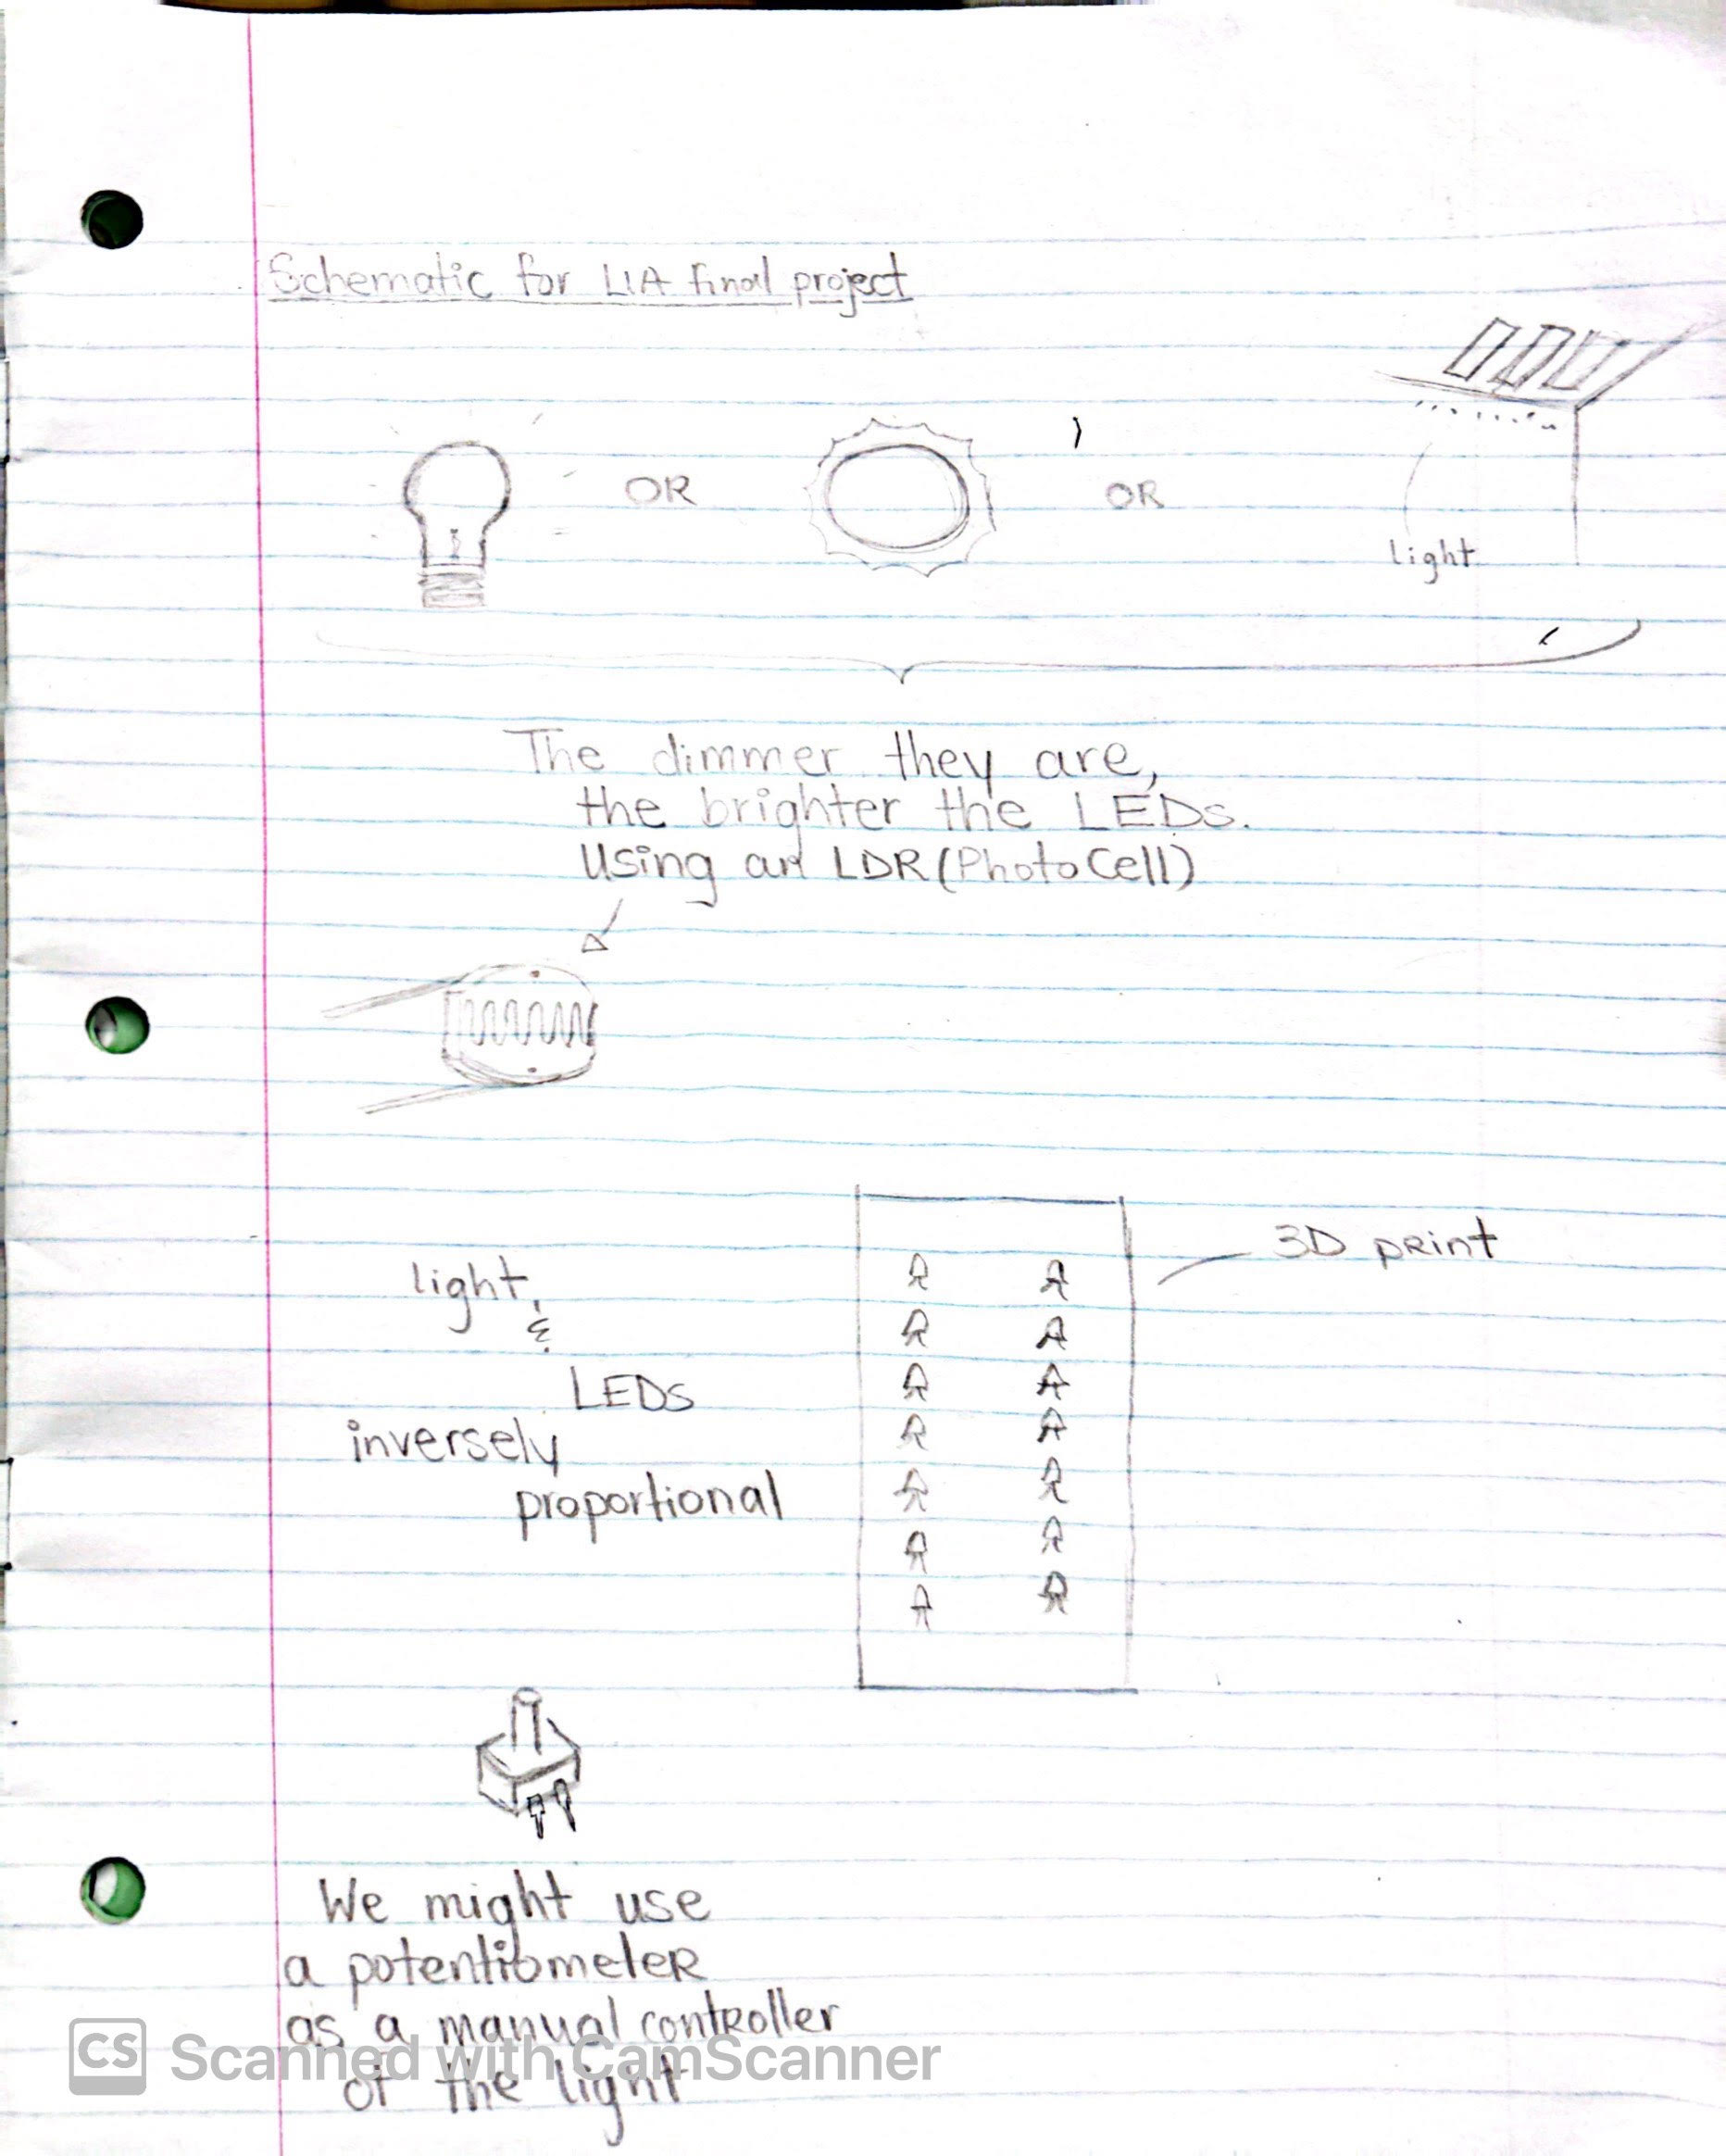 Schematic for LIA final project
OR
OR
light
The dimmer they are,
the brighter the LEDs.
Using an LDR (PhotoCell)
3D print
light
&
LEDs
inversely
proportional
We might use
a potentiometer
as a manual controller
of the light
CS Scanned with CamScanner